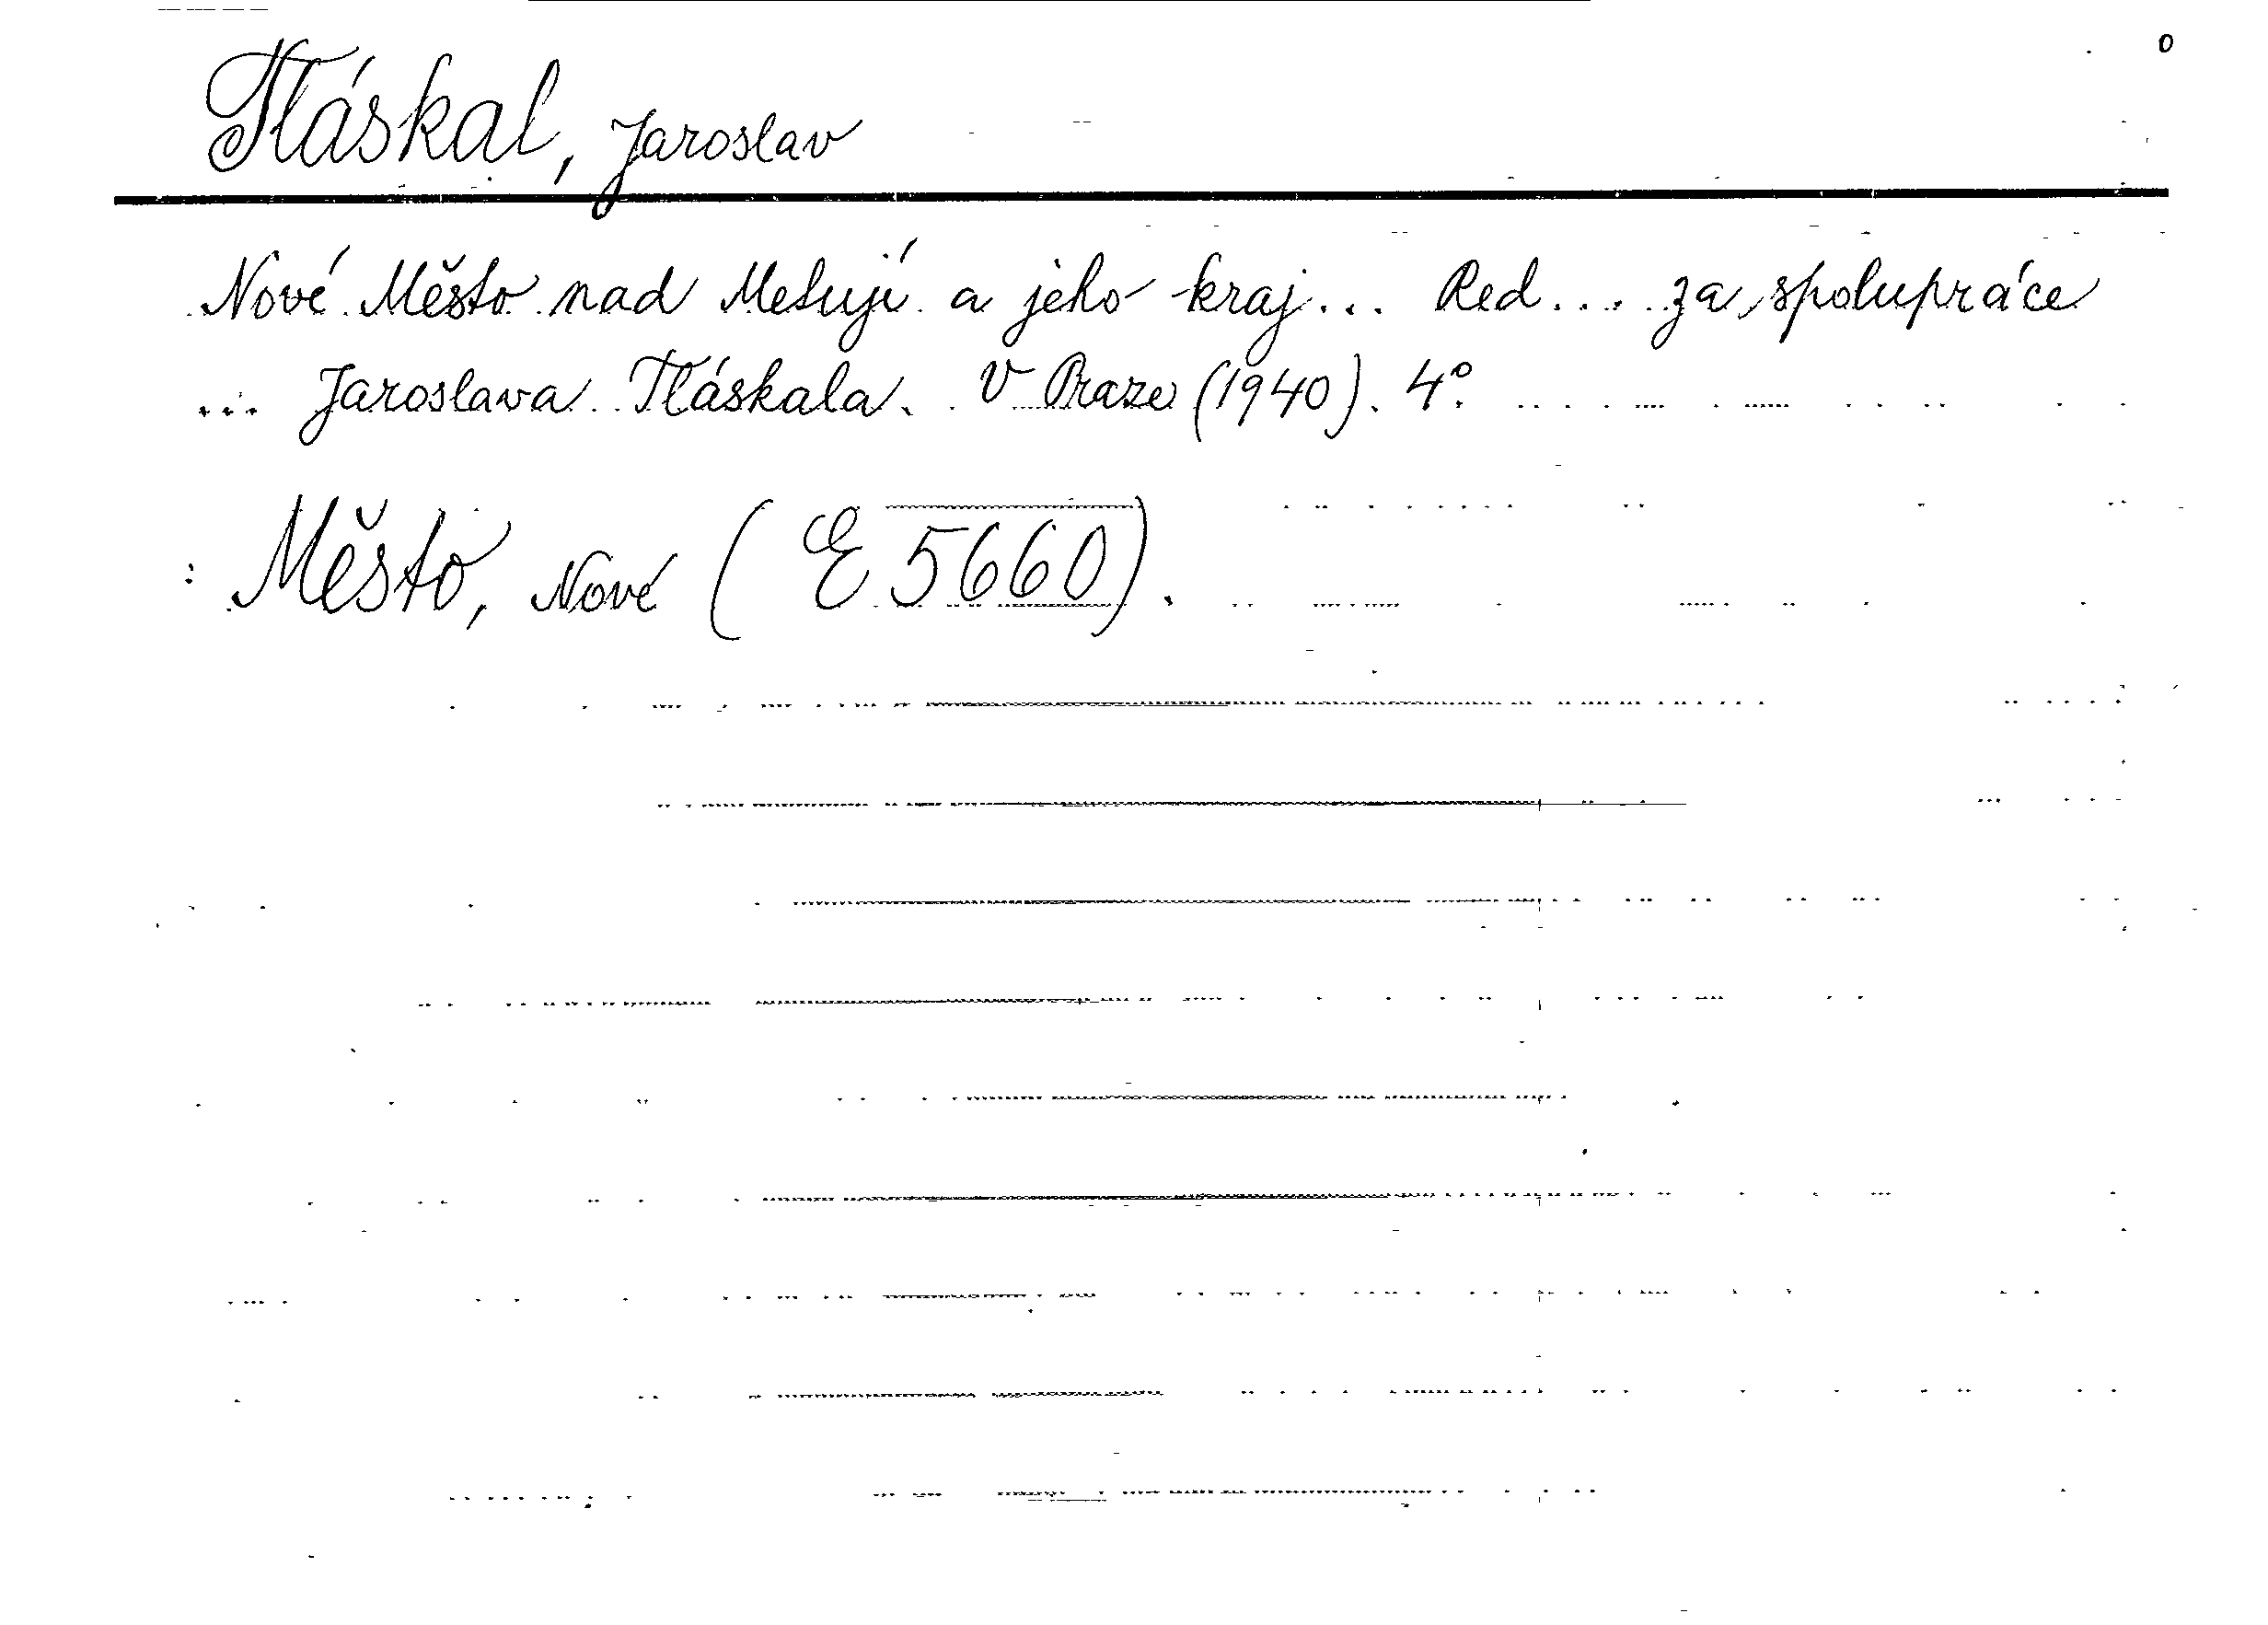 0
Tláskal, Jaroslav
Nové Město nad Metují a jeho kraj... Red.... za spolupráce
... Jaroslava Tláskala. V Praze (1940). 4°.
: Město, Nové (E 5660).